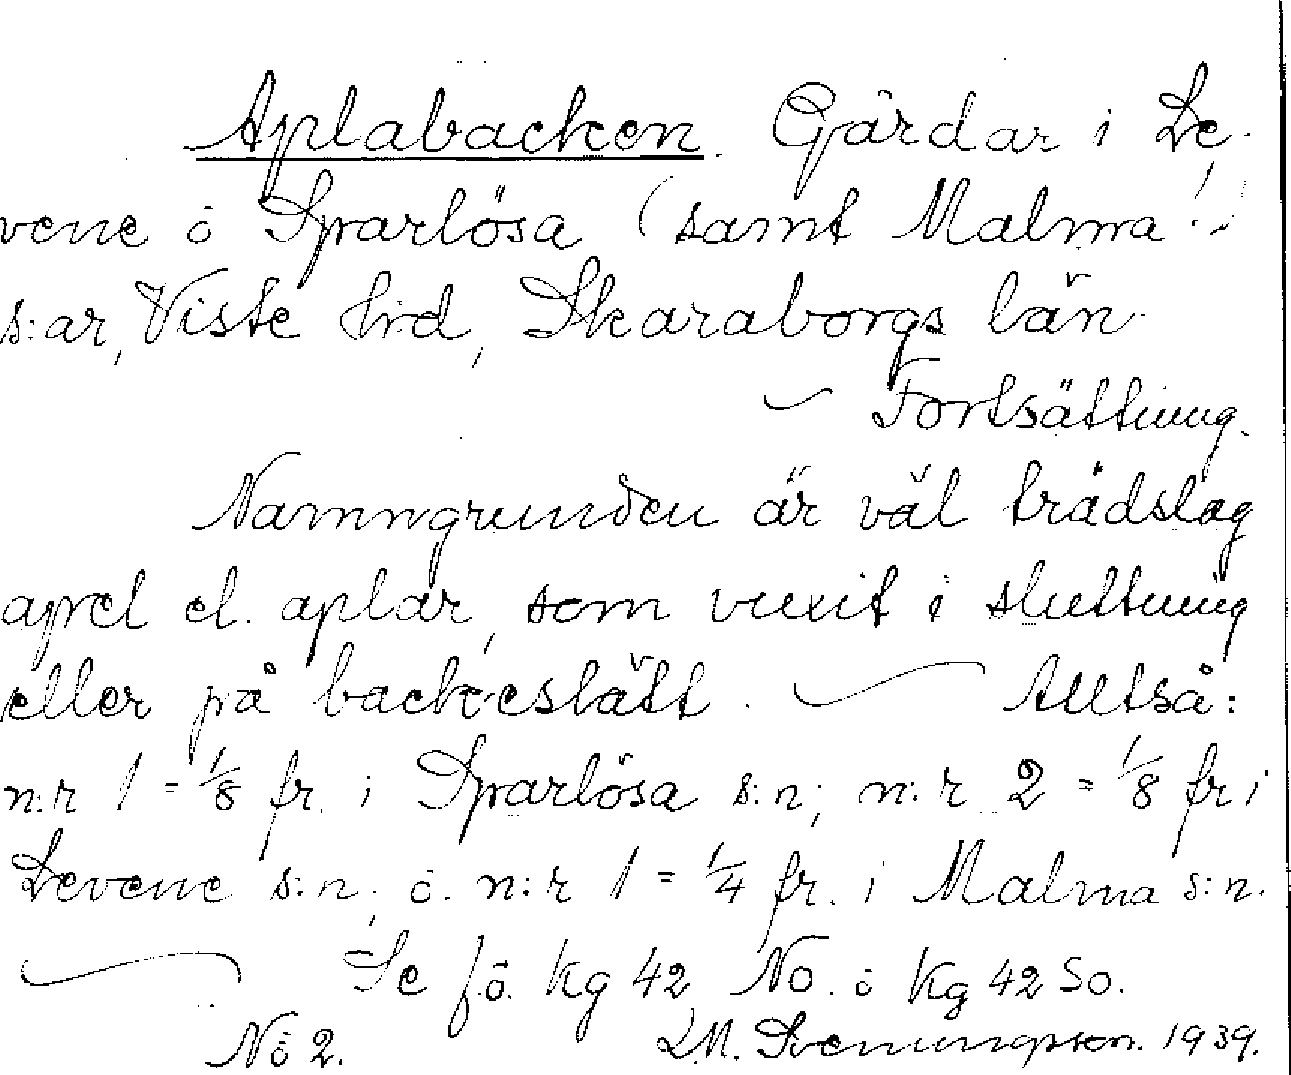 Aplabacken. Gärdar i Le-
vene ö Sparlösa (samt Malma!)
s:ar, Viste hrd, Skaraborgs län.
— Fortsättning.
Namngrunden är väl trädslag
apel el. aplar, som vuxit i sluttning
eller på backeslätt. — Alltså:
n:r 1 = 1/8 fr. i Sparlösa s:n; n:r 2 = 1/8 fr i
Levene s:n; ö. n:r 1 = 1/4 fr. i Malma s:n.
— Se f.ö. Kg 42 No. ö Kg 42 So.
No 2. L.M. Svenungsson. 1939.